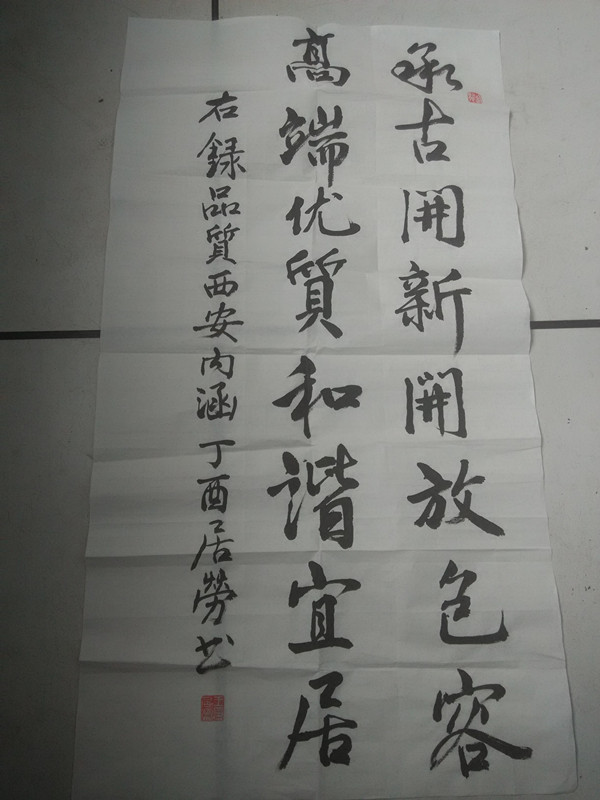 承古開新開放包容
高端优質和諧宜居
右録品質西安内涵丁酉居勞书